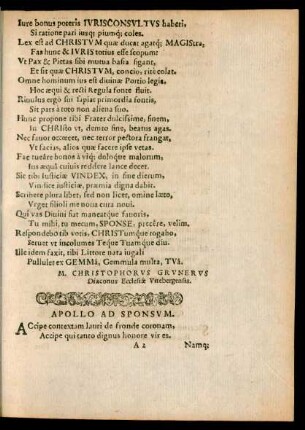 Iure bonus poteris IVRISCONSVLTVS haberi,
Si ratione pari iusq; piumq; coles.
Lex est ad CHRISTVM quæ ducat agatq; MAGIStra,
Fas hunc & IVRIS totius esse scopum:
Vt Pax & Pietas sibi mutua basia figant,
Et sit quæ CHRISTVM, concio, ritè colat.
Omne hominum ius est diuinæ Portio legis,
Hoc æqui & recti Regula fonte fluit.
Riuulus ergò sui sapiat primordia fontis,
Sit pars à toto non aliena suo.
Hunc propone tibi Frater dulcissime, finem,
In CHRIsto vt, demto fine, beatus agas.
Nec fauor occæcet, nec terror pectora frangat,
Vt facias, alios quæ facere ipse vetas.
Fac tueare bonos à viq; doloq; malorum,
Ius æquâ cuiuis reddere lance decet.
Sic tibi Iusticiæ VINDEX, in fine dierum,
Vindice iusticiæ, præmia digna dabit.
Scribere plura libet, sed non licet, omine læto,
Veget filioli me noua cura noui.
Qui vas Diuini fut maneatque fauoris,
Tu mihi, tu mecum, SPONSE, precêre, velim.
Respondebo votis votis, CHRISTumque rogabo,
Seruet vt incolumes Teque Tuamque diu.
Ille idem faxit, tibi Littore nata iugali
Pullulet ex GEMMA, Gemmula multa, TVA.
M. CHRISTOPHORVS GRVNERVS
Diaconus Ecclesiæ Vitebergensis.
APOLLO AD SPONSVM.
ACcipe contextam lauri de fronde coronam,
Accipe qui tanto dignus honore vir es.
A 2 Namq;